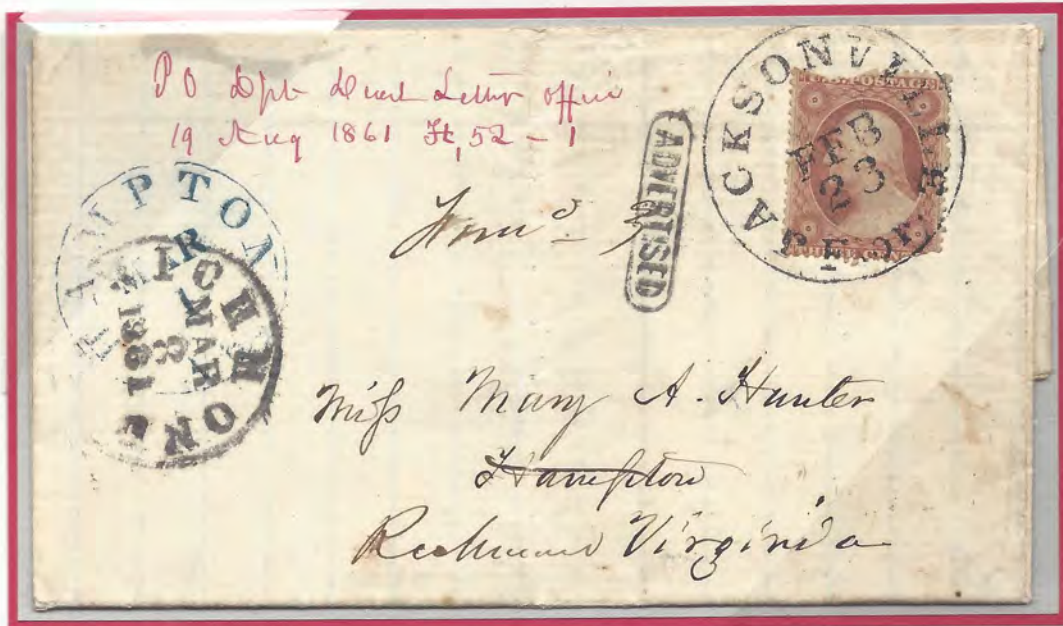 PO Dpt Dead Letter Office
19 Aug 1861 H, 52 - 1
JACKSONVILLE
FEB
23
E. Flor.
U.S. POSTAGE
ADVERTISED
HAMPTON
MAR
Forwd- 3
RICHMOND
MAR
8
1861
Miss Mary A. Hunter
Hampton
Richmond Virginia